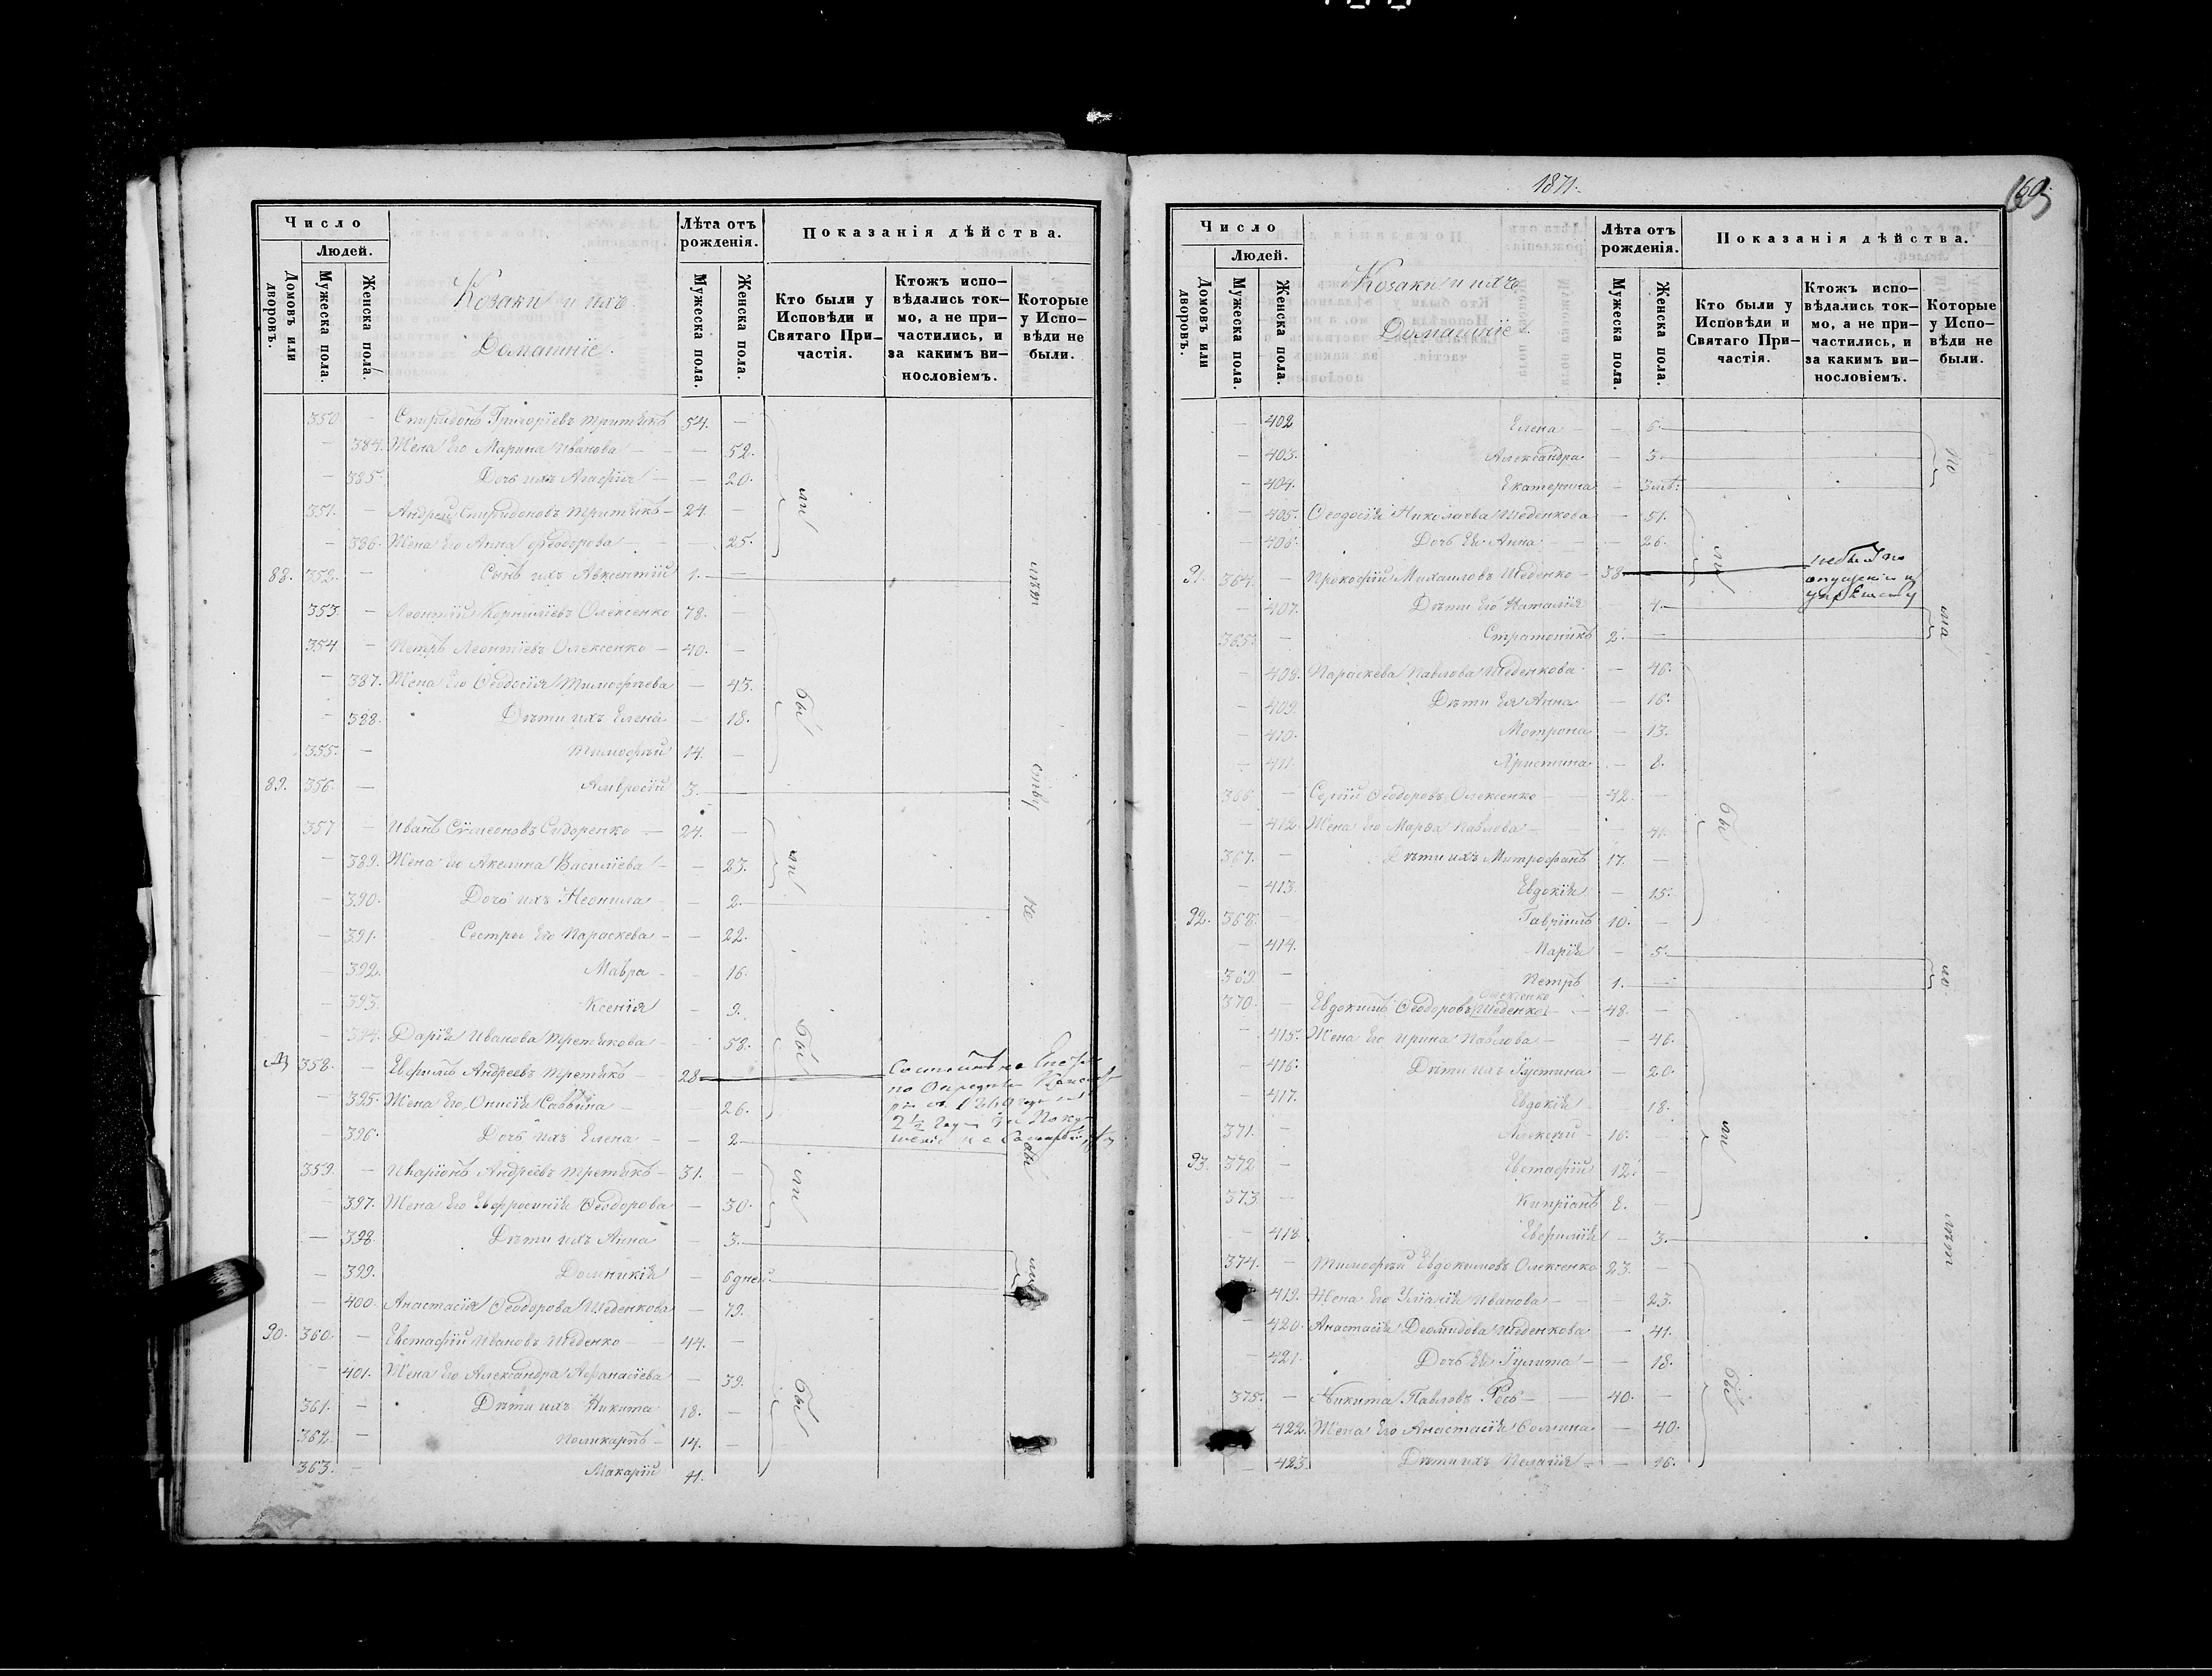 Число
Людей.
Домовъ или дворовъ.
Мужеска пола.
Женска пола.
Козаки и ихъ
Домашніе.
Лѣта отъ рожденія.
Мужеска пола.
Женска пола.
Показанія дѣйства.
Кто были у Исповѣди и Святаго Причастія.
Ктожъ исповѣдались токмо, а не причастились, и за какимъ винословіемъ.
Которые у Исповѣди не были.
350 — Спиридонъ Григоріевъ Третякъ 54. —
— 384. Жена Его Марина Иванова — 52.
— 385. Дочь ихъ Агафія — 20.
351. — Андрей Спиридоновъ Третякъ — 24. —
— 386. Жена Его Анна Феодорова — 25.
88. 352. — Сынъ ихъ Авксентій 1. —
353. — Леонтій Корниліевъ Олексенко 78. —
354 — Петръ Леонтіевъ Олексенко — 40. —
— 387. Жена Его Феодосія Тимофѣева — 43.
— 388. Дѣти ихъ Елена — 18.
355. — Тимофѣй 14. —
89. 356. — Амвросій 3. —
357 — Иванъ Симеоновъ Сидоренко — 24. —
— 389. Жена Его Акелина Василіева — 23.
— 390. Дочь ихъ Неонила — 2.
— 391. Сестры Его Параскева — 22.
— 392. Мавра — 16.
— 393. Ксенія — 9.
— 394. Дарія Иванова Третякова — 58.
358. — Евфимъ Андреевъ Третякъ — 28
— 395. Жена Его Онисія Саввина — 26.
— 396. Дочь ихъ Елена — 2
359. — Иларіонъ Андреевъ Третякъ — 31. —
— 397. Жена Его Евфросинія Феодорова — 30.
— 398. Дѣти ихъ Анна — 3.
— 399. Домникія — 6 дней.
— 400. Анастасія Феодорова Шеденкова — 79.
90. 360. — Евстафій Ивановъ Шеденко — 44. —
— 401. Жена Его Александра Афанасіева — 39.
361. — Дѣти ихъ Никита 18. —
362. — Поликарпъ — 14. —
363. — Макарій 11.
1871.
Число
Людей.
Домовъ или дворовъ.
Мужеска пола.
Женска пола.
Козаки и ихъ
Домашніе.
Лѣта отъ рожденія.
Мужеска пола.
Женска пола.
Показанія дѣйства.
Кто были у Исповѣди и Святаго Причастія.
Ктожъ исповѣдались токмо, а не причастились, и за какимъ винословіемъ.
Которые у Исповѣди не были.
— 402 Елена — 6.
— 403. Александра — 3.
— 404. Екатерина —
— 405. Феодосія Николаева Шеденкова — 51.
— 406. Дочь Ея Анна — 26.
91. 364. — Прокофій Михаиловъ Шеденко — 38
— 407. Дѣти Его Наталія 4.
365. — Стратоникъ 2. —
— 408. Параскева Павлова Шеденкова — 46.
— 409. Дѣти Ея Анна — 16.
— 410. Мотрона — 13.
— 411. Христина — 8.
366 — Сергій Феодоровъ Олексенко — 42. —
— 412. Жена Его Марфа Павлова — 41.
367. — Дѣти ихъ Митрофанъ 17. —
— 413. Евдокія — 15.
92. 368. — Гавріилъ 10. —
— 414. Марія — 5.
369 — Петръ 1. —
Олексенко
370. — Евдокимъ Феодоровъ Шеденко — 48. —
— 415. Жена Его Ирина Павлова — 46.
— 416. Дѣти ихъ Іустина — 20.
— 417. Евдокія — 18.
371. — Алексій — 16. —
93. 372 — Евстафій 12. —
373 — Кипріанъ 8. —
— 418. Евфимія — 3.
374. — Тимофѣй Евдокимовъ Олексенко 23. —
419. Жена Его Уліанія Иванова — 23.
— 420. Анастасія Деомидова Шеденкова — 41.
— 421. Дочь Ея Іулита — 18.
375. — Никита Павловъ Рось — 40. —
422. Жена Его Анастасія Фомина — 40.
— 423. Дѣти ихъ Пелагія — 16.